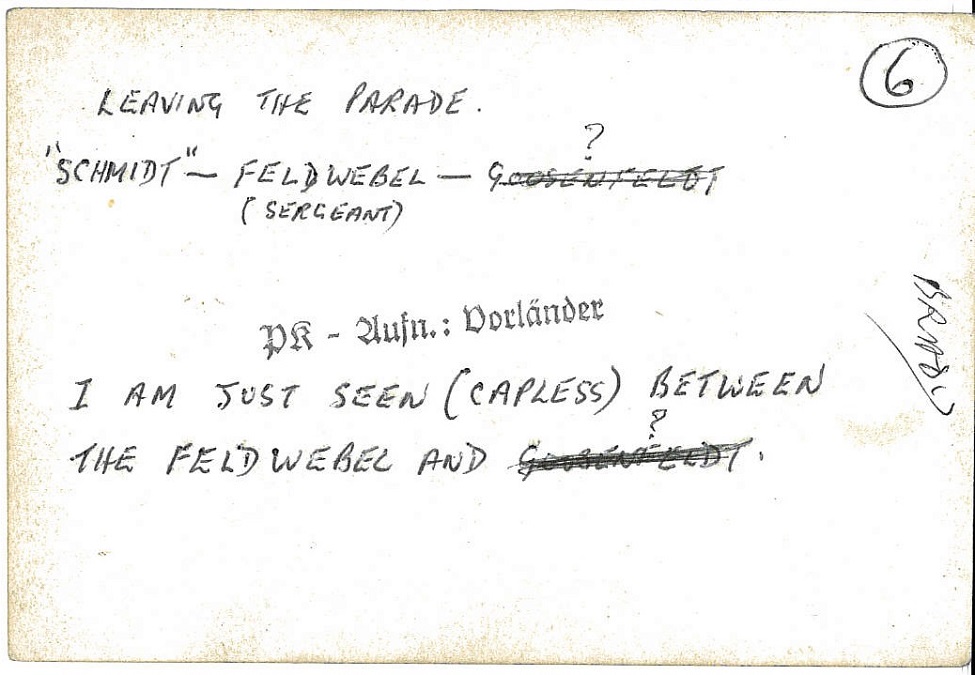 6
LEAVING THE PARADE.
?
"SCHMIDT" — FELDWEBEL — GOOSENFELDT
(SERGEANT)
PK - Aufn.: Vorländer
I AM JUST SEEN (CAPLESS) BETWEEN
?
THE FELDWEBEL AND GOOSENFELDT.